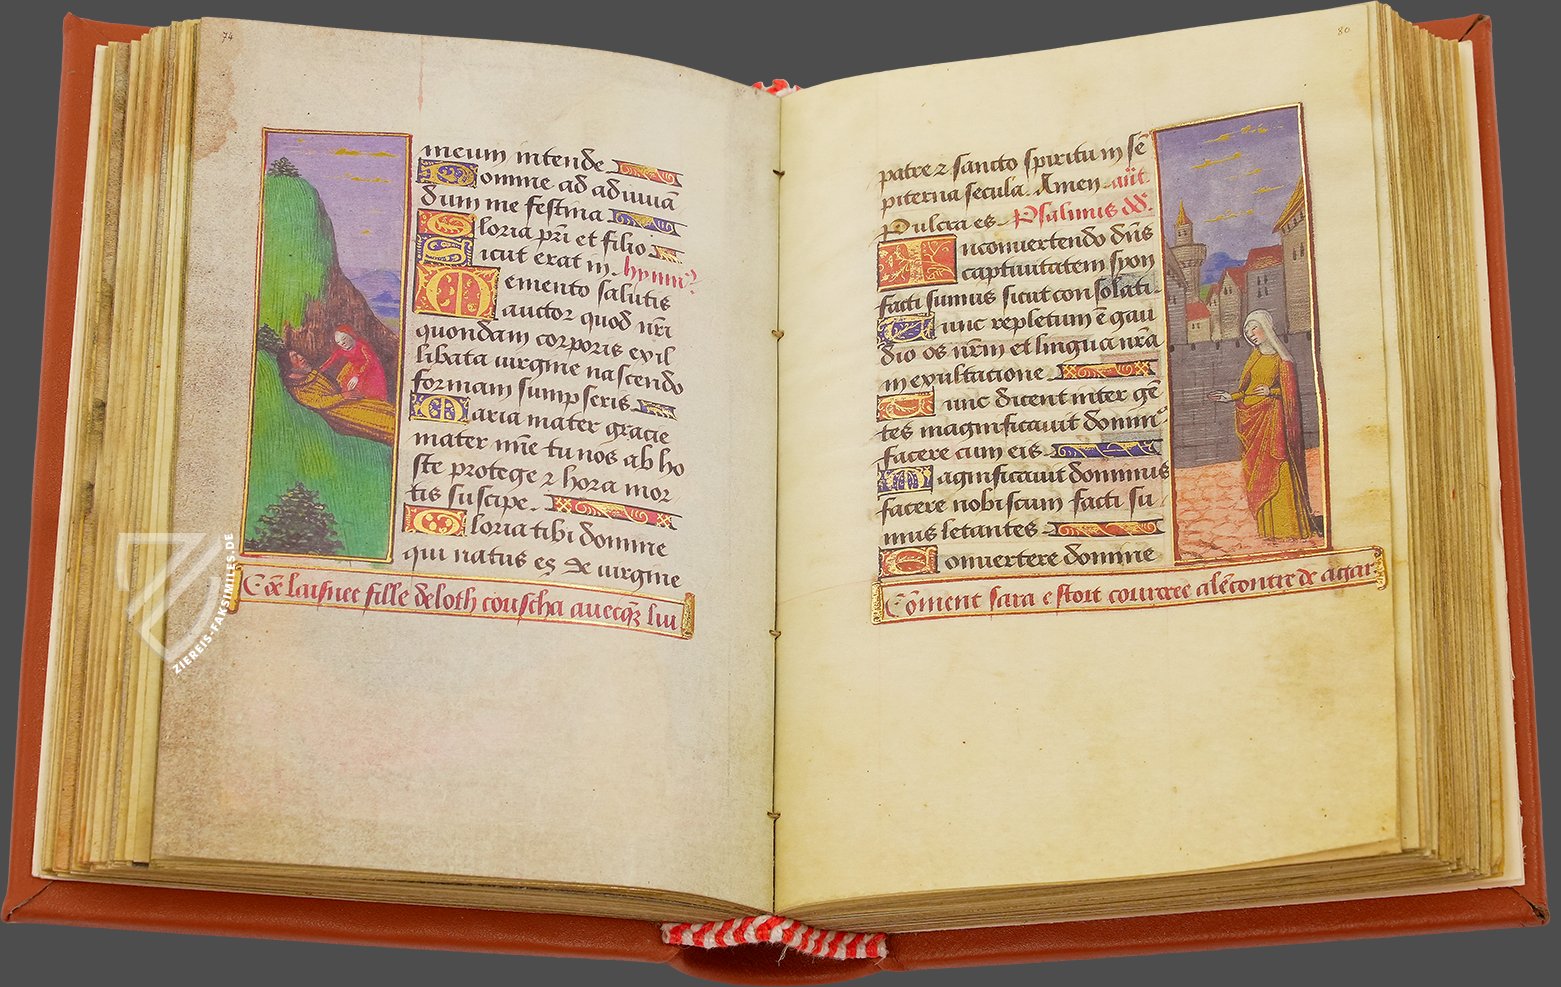 74
meum intende
Domine ad adiuua
dum me festina
Gloria pri et filio
Sicut erat in. hymnus
Memento salutis
auctor quod nri
quondam corporis exil
libata uirgine nascendo
formam sumpseris.
Maria mater gracie
mater mie tu nos ab ho
ste protege ⁊ hora mor
tis suscipe.
Gloria tibi domine
qui natus es de uirgine
Cōe laisnee fille de loth couscha auecq̄z lui
80
patre ⁊ sancto spiritu in sē
piterna secula. Amen. añt
Pulcra es. Psalmus dd.
In conuertendo dn̄s
captiuitatem syon
facti sumus sicut consolati.
Tunc repletum ē gau
dio os nrm et lingua nra
in exultacione.
Tunc dicent inter gē
tes magnificauit domin9
facere cum eis.
Magnificauit dominus
facere nobiscum facti su
mus letantes.
Conuertere domine
Cōment sara estoit courcee a lēcontre de agar
ZIEREIS-FAKSIMILES.DE